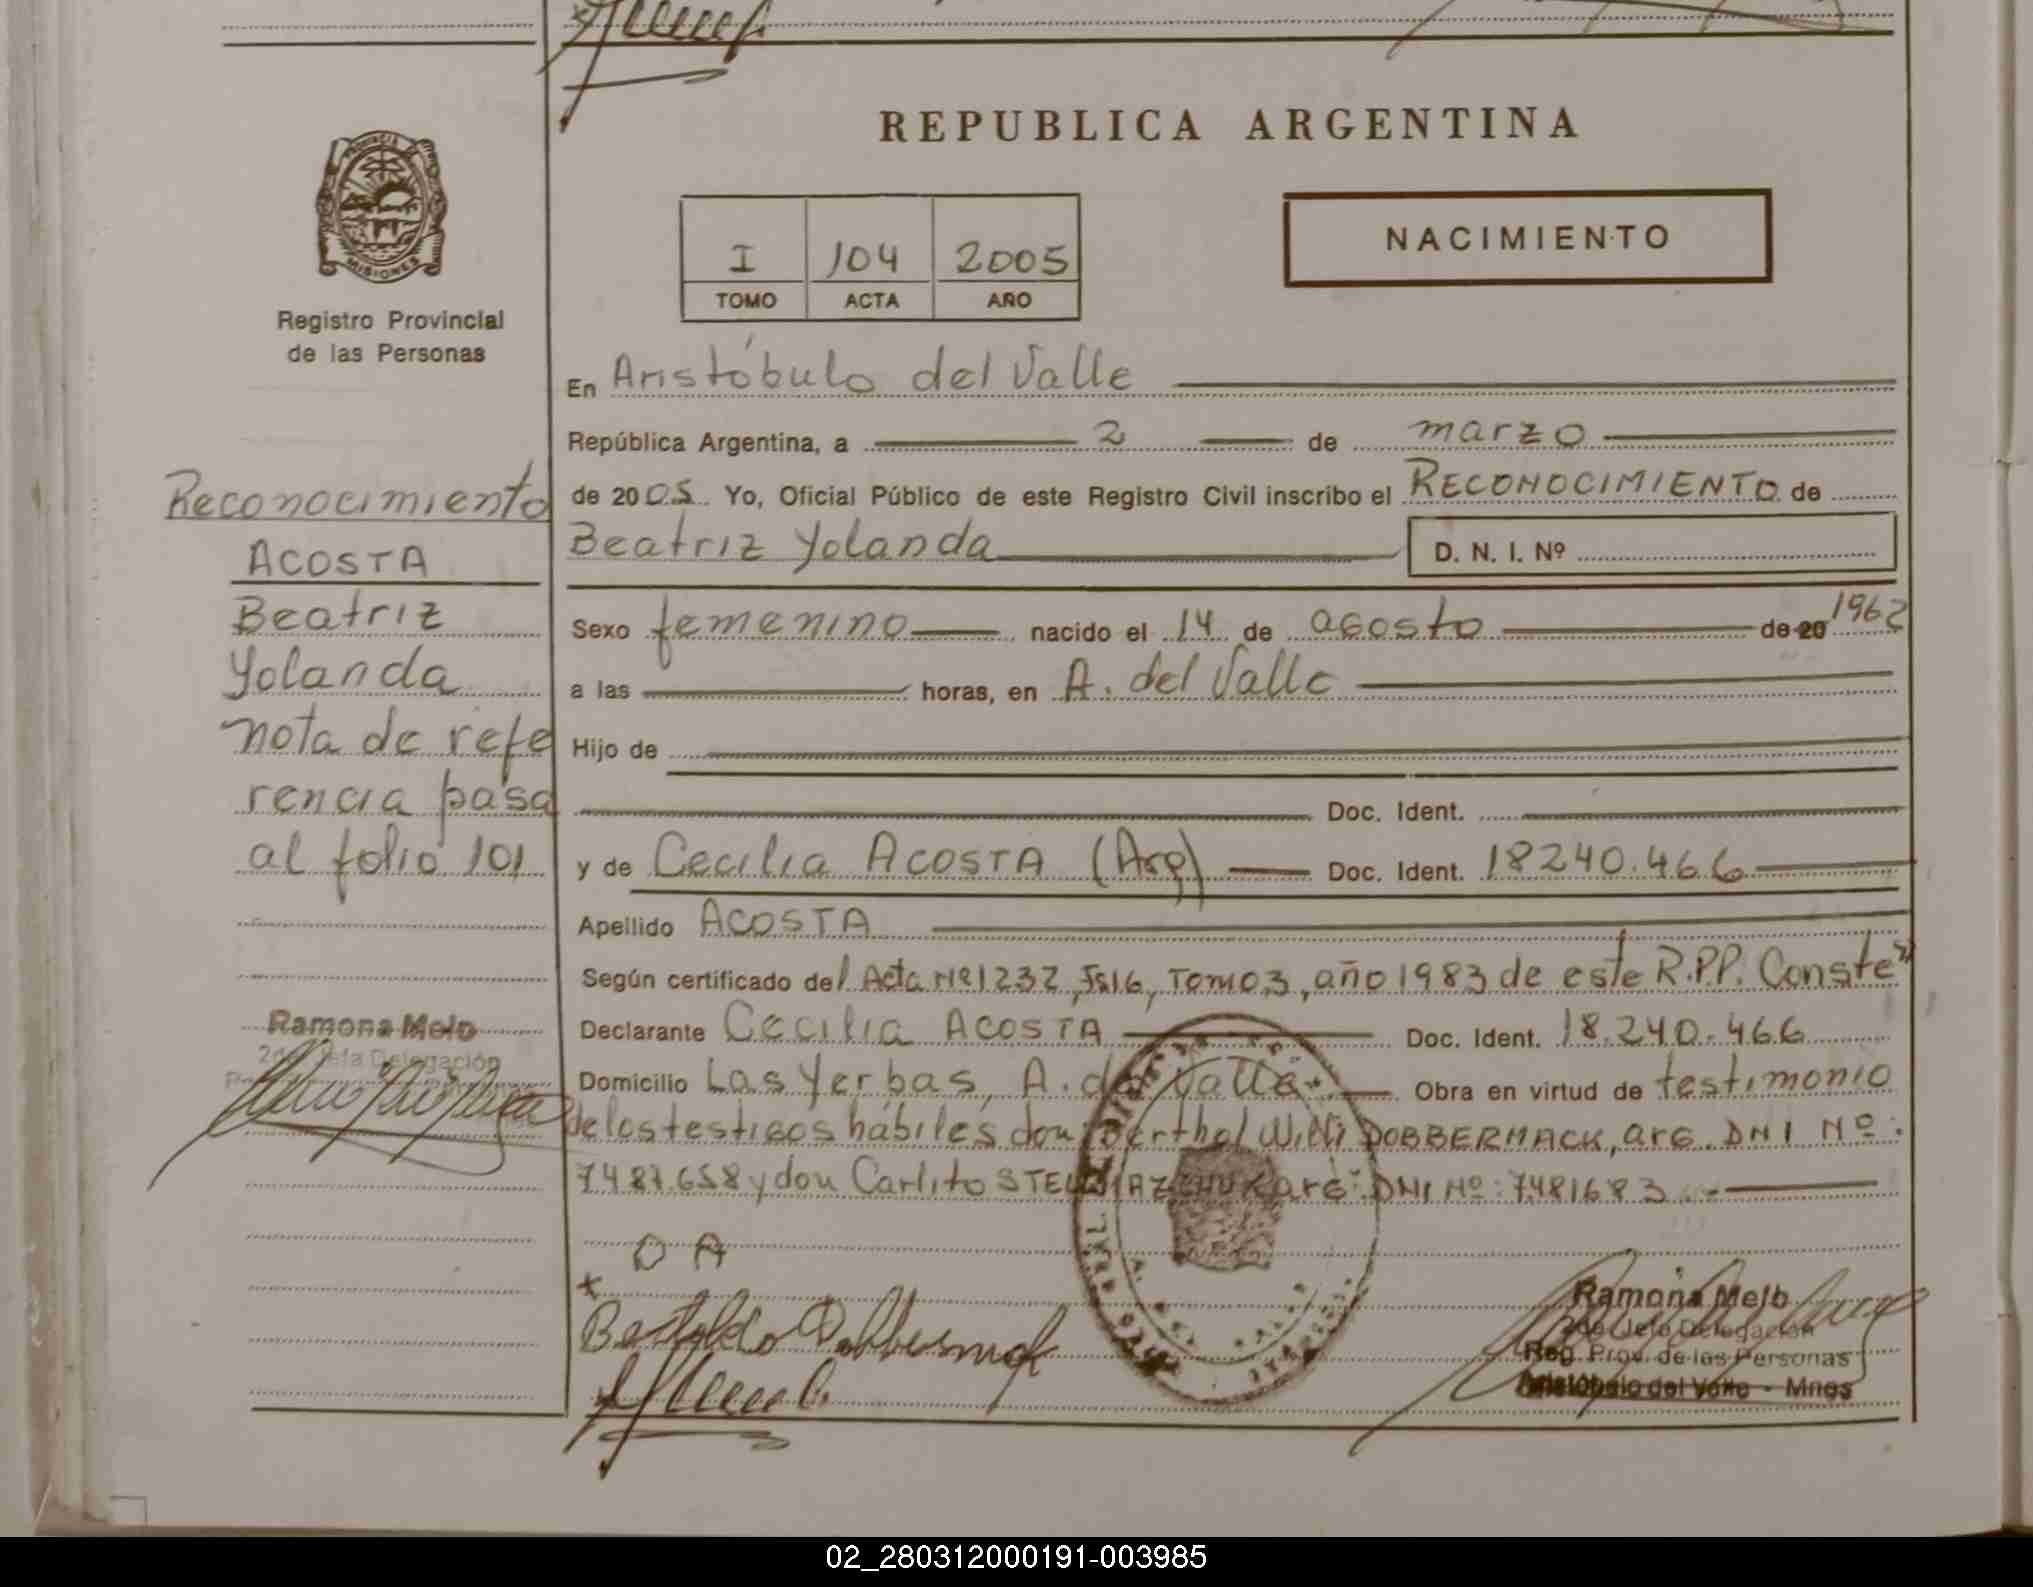 REPUBLICA ARGENTINA
PROVINCIA DE
MISIONES
Registro Provincial
de las Personas
I 104 2005
TOMO ACTA AÑO
NACIMIENTO
En Aristóbulo del Valle
República Argentina, a 2 de marzo
de 2005 Yo, Oficial Público de este Registro Civil inscribo el RECONOCIMIENTO de
Beatriz Yolanda D. N. I. Nº
Sexo femenino nacido el 14 de agosto de 20 1962
a las horas, en A. del Valle
Hijo de
Doc. Ident.
y de Cecilia ACOSTA (Arg) Doc. Ident. 18240.466
Apellido ACOSTA
Según certificado del Acta Nº1232, Fs16, Tomo3, año 1983 de este R.P.P. Conste
Declarante Cecilia ACOSTA Doc. Ident. 18.240.466
Domicilio Las Yerbas, A. del Valle. Obra en virtud de testimonio
de los testigos hábiles, don Berthol Willi DOBBERMACK, arg. DNI Nº:
y don Carlito arg. DNI Nº: 7481683.-
Reconocimiento
ACOSTA
Beatriz
Yolanda
nota de refe
rencia pasa
al folio 101
Ramona Melo
2da Jefa Delegación
C A
Ramona Melo
2da Jefa Delegación
Reg. Prov. de las Personas
Aristóbulo del Valle - Mnes
02_280312000191-003985